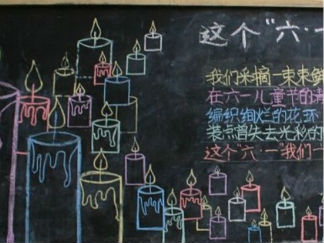 这个“六·
我们采摘一束束鲜
在六一儿童节的清
编织绚烂的花环
装点曾失去光彩的
这个“六一”我们一